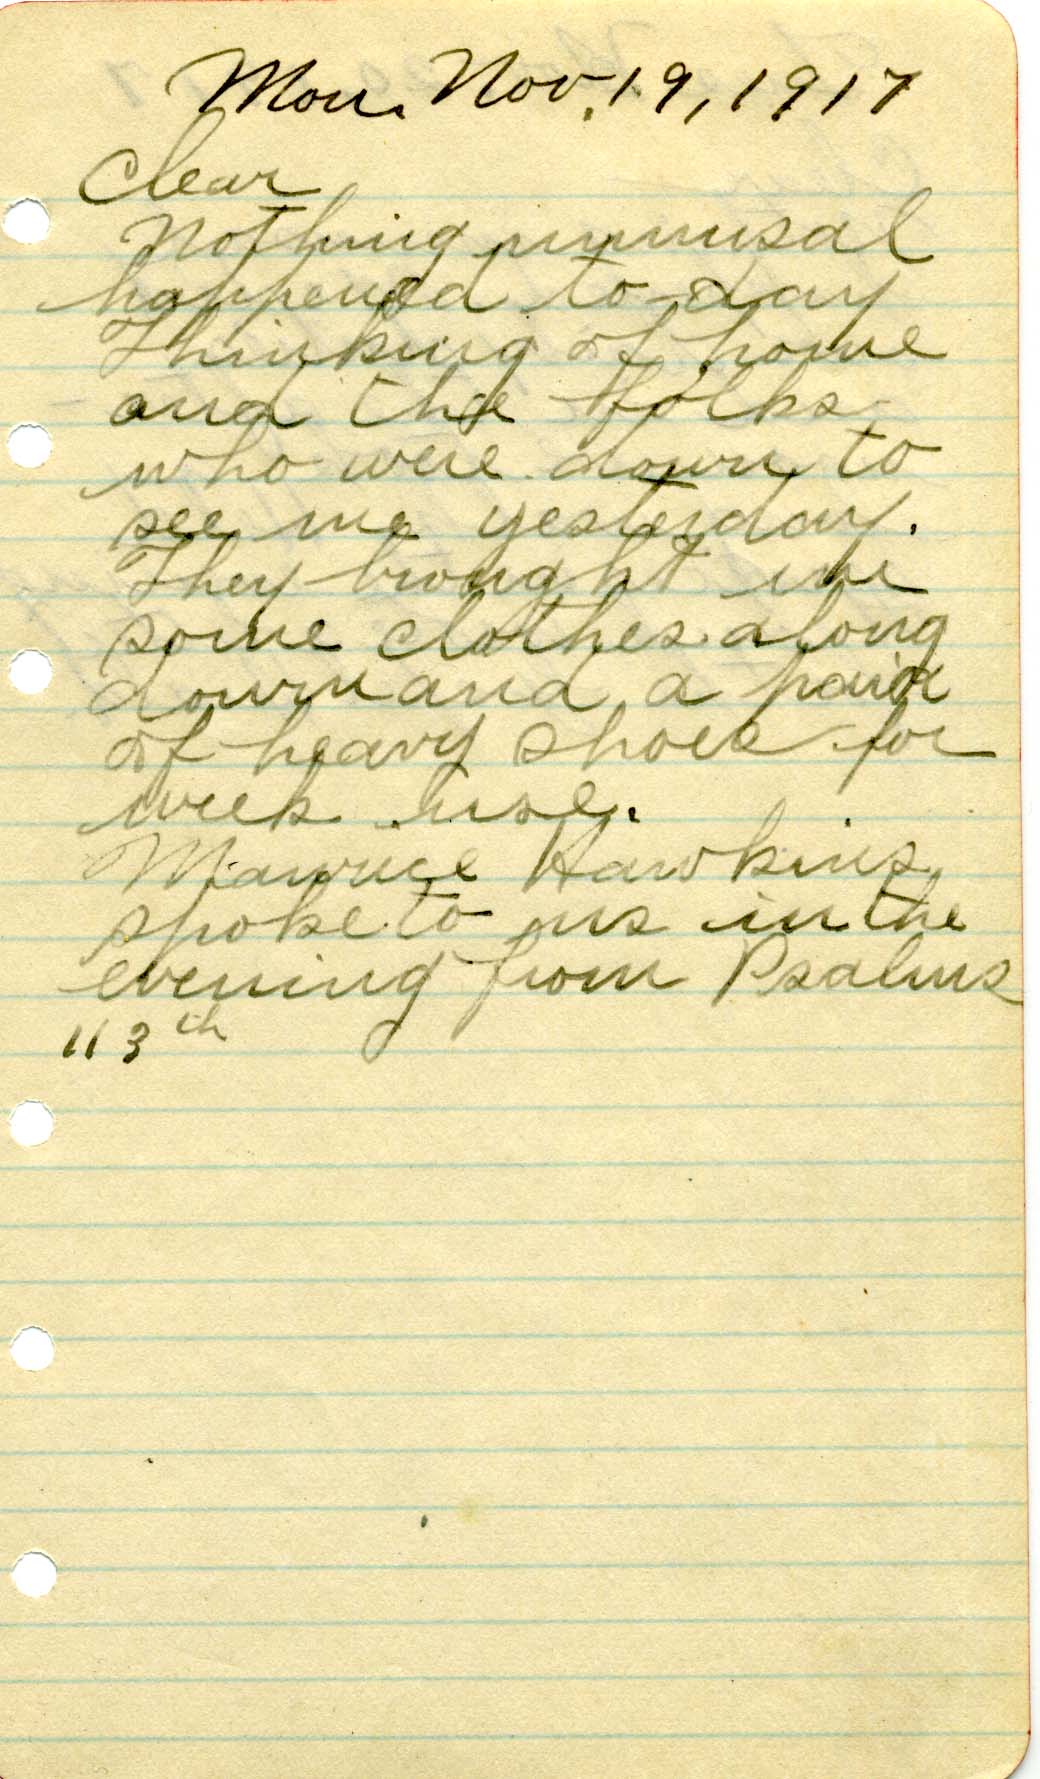 Mon. Nov. 19, 1917
Clear
Nothing unnusal
happened to-day
Thinking of home
and the folks
who were down to
see me yesterday.
They brought me
some clothes along
down and a pair
of heavy shoes for
week use.
Maurice Hawkins
spoke to us in the
evening from Psalms
113th